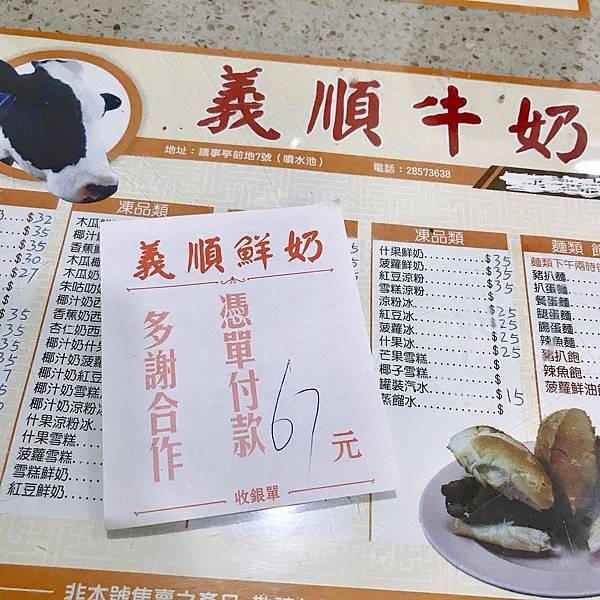 義順牛奶
地址：議事亭前地7號（噴水池）
電話：28573638
凍品類
凍品類
麵類
$32
$35
$35
$30
$27
木瓜
椰汁
香蕉
木瓜椰
木瓜奶
朱咕叻
椰汁奶西
香蕉奶西
杏仁奶西
椰汁奶什
椰汁奶菠蘿
椰汁奶紅豆
椰汁奶雪糕
椰汁奶涼粉
什果涼粉冰
什果雪糕
菠蘿雪糕
雪糕鮮奶
紅豆鮮奶
義順鮮奶
憑單付款
多謝合作
67元
收銀單
什果鮮奶 $35
菠蘿鮮奶 $35
紅豆涼粉 $35
雪糕涼粉 $35
涼粉冰 $25
紅豆冰 $25
菠蘿冰 $25
什果冰 $25
芒果雪糕 $
椰子雪糕 $
罐裝汽水 $15
蒸餾水 $
麵類下午兩時後
豬扒麵
扒蛋麵
餐蛋麵
腿蛋麵
腸蛋麵
辣魚麵
豬扒飽
辣魚飽
菠蘿鮮油
非本號售賣之產品